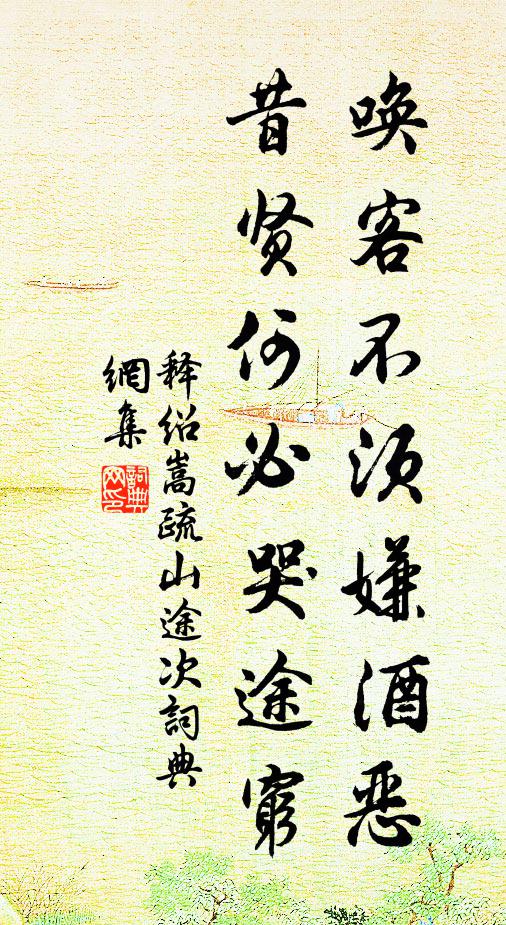 唤客不须嫌酒恶
昔贤何必哭途穷
释绍嵩疏山途次词典
網集
詞典
网印